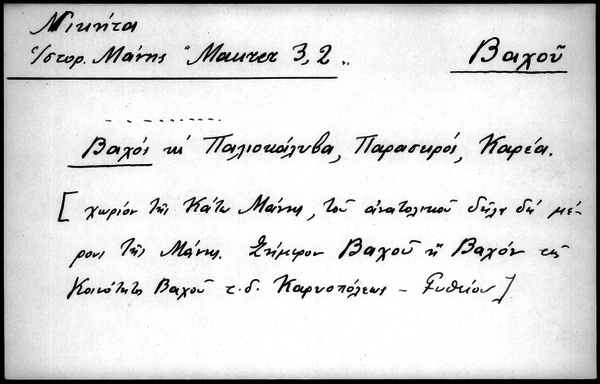 Νικήτα
Ἱστορ. Μάνης "Μαυτετ 3,2..
Βαχοῦ
Βαχός κι Παλιοκάλυβα, Παρασυρός, Καρέα.
[χωρίον τῆς Κάτω Μάνης, τοῦ ἀνατολικοῦ δηλαδὴ μέ-
ρους τῆς Μάνης. Σήμερον Βαχοῦ ἢ Βαχόν τῆς
Κοινότητς Βαχοῦ τ. δ. Καρυοπόλεως - Γυθείου]